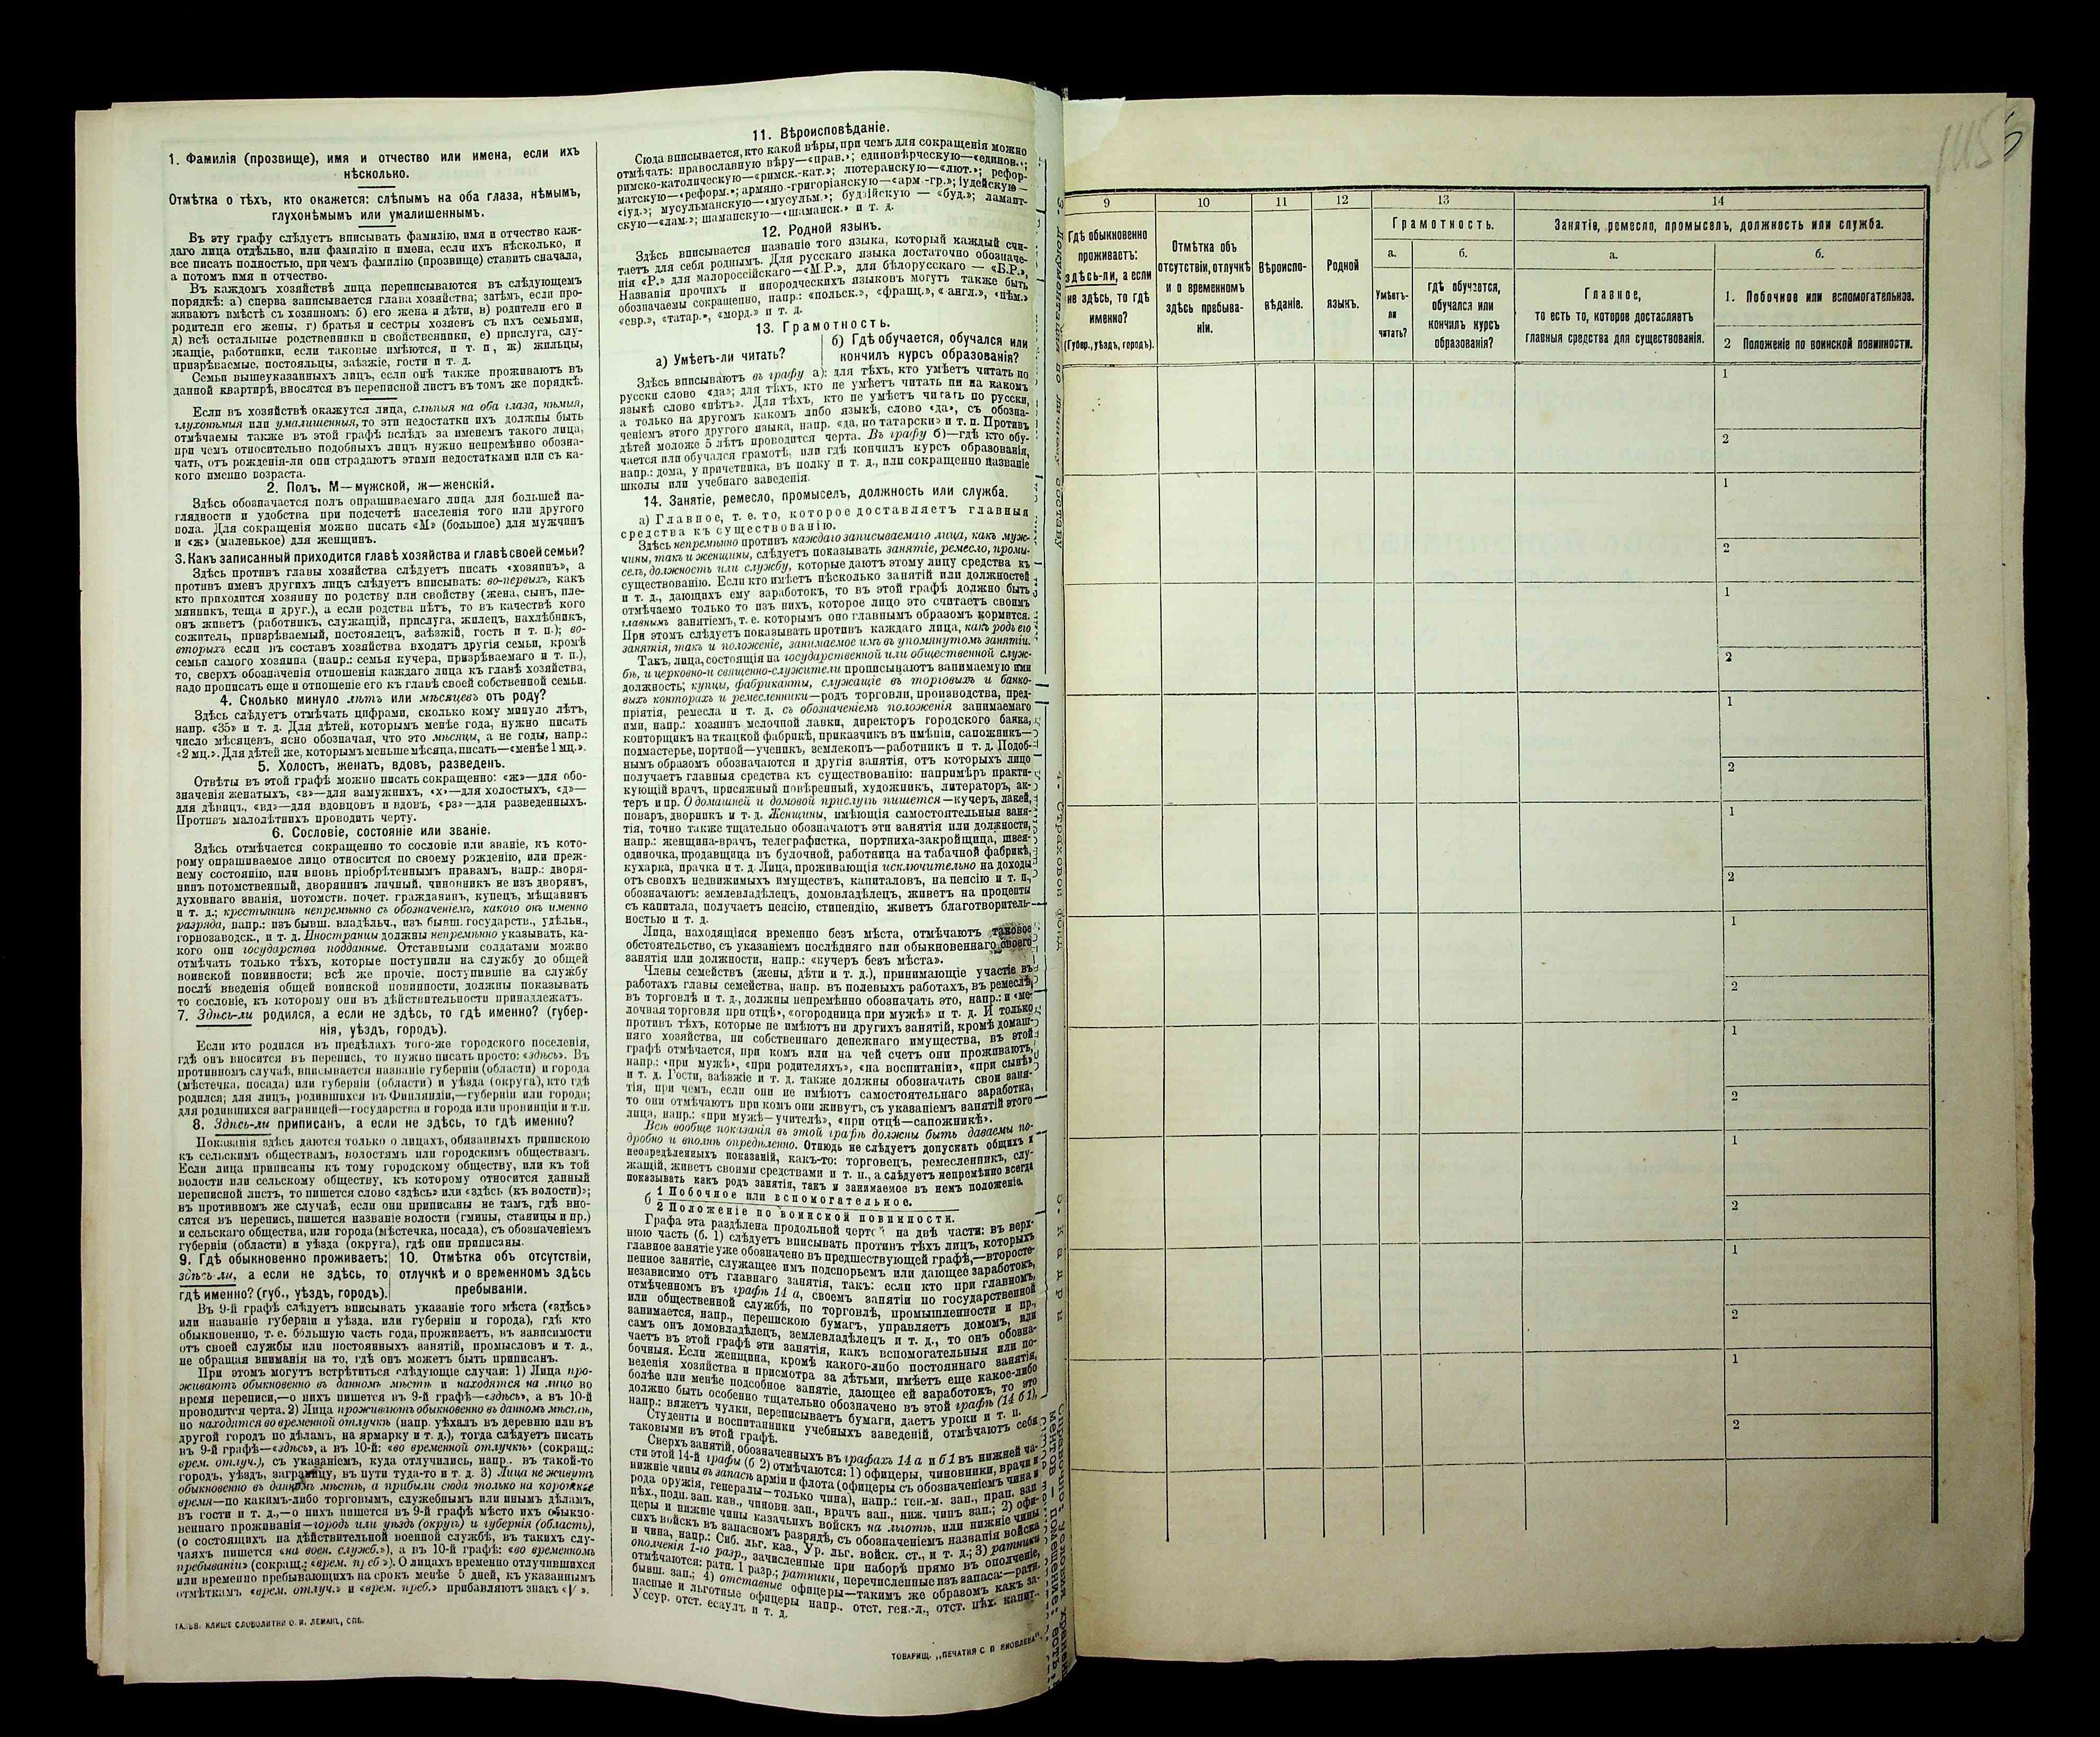 1. Фамилія (прозвище), имя и отчество или имена, если ихъ
нѣсколько.
Отмѣтка о тѣхъ, кто окажется: слѣпымъ на оба глаза, нѣмымъ,
глухонѣмымъ или умалишеннымъ.
Въ эту графу слѣдуетъ вписывать фамилію, имя и отчество каж-
даго лица отдѣльно, или фамилію и имена, если ихъ нѣсколько, и
все писать полностью, при чемъ фамилію (прозвище) ставить сначала,
а потомъ имя и отчество.
Въ каждомъ хозяйствѣ лица переписываются въ слѣдующемъ
порядкѣ: а) сперва записывается глава хозяйства; затѣмъ, если про-
живаютъ вмѣстѣ съ хозяиномъ: б) его жена и дѣти, в) родители его и
родители его жены, г) братья и сестры хозяевъ съ ихъ семьями,
д) всѣ остальные родственники и свойственники, е) прислуга, слу-
жащіе, работники, если таковые имѣются, и т. п., ж) жильцы,
призрѣваемые, постояльцы, заѣзжіе, гости и т. д.
Семьи вышеуказанныхъ лицъ, если онѣ также проживаютъ въ
данной квартирѣ, вносятся въ переписной листъ въ томъ же порядкѣ.
Если въ хозяйствѣ окажутся лица, слѣпыя на оба глаза, нѣмыя,
глухонѣмыя или умалишенныя, то эти недостатки ихъ должны быть
отмѣчаемы также въ этой графѣ вслѣдъ за именемъ такого лица,
при чемъ относительно подобныхъ лицъ нужно непремѣнно обозна-
чать, отъ рожденія-ли они страдаютъ этими недостатками или съ ка-
кого именно возраста.
2. Полъ. М—мужской, ж—женскій.
Здѣсь обозначается полъ опрашиваемаго лица для большей на-
глядности и удобства при подсчетѣ населенія того или другого
пола. Для сокращенія можно писать «М» (большое) для мужчинъ
и «ж» (маленькое) для женщинъ.
3. Какъ записанный приходится главѣ хозяйства и главѣ своей семьи?
Здѣсь противъ главы хозяйства слѣдуетъ писать «хозяинъ», а
противъ именъ другихъ лицъ слѣдуетъ вписывать: во-первыхъ, какъ
кто приходится хозяину по родству или свойству (жена, сынъ, пле-
мянникъ, теща и друг.), а если родства нѣтъ, то въ качествѣ кого
онъ живетъ (работникъ, служащій, прислуга, жилецъ, нахлѣбникъ,
сожитель, призрѣваемый, постоялецъ, заѣзжій, гость и т. п.); во-
вторыхъ если въ составъ хозяйства входятъ другія семьи, кромѣ
семьи самого хозяина (напр.: семья кучера, призрѣваемаго и т. п.),
то, сверхъ обозначенія отношенія каждаго лица къ главѣ хозяйства,
надо прописать еще и отношеніе его къ главѣ своей собственной семьи.
4. Сколько минуло лѣтъ или мѣсяцевъ отъ роду?
Здѣсь слѣдуетъ отмѣчать цифрами, сколько кому минуло лѣтъ,
напр. «35» и т. д. Для дѣтей, которымъ менѣе года, нужно писать
число мѣсяцевъ, ясно обозначая, что это мѣсяцы, а не годы, напр.:
«2 мц.». Для дѣтей же, которымъ меньше мѣсяца, писать—«менѣе 1 мц.».
5. Холостъ, женатъ, вдовъ, разведенъ.
Отвѣты въ этой графѣ можно писать сокращенно: «ж»—для обо-
значенія женатыхъ, «з»—для замужнихъ, «х»—для холостыхъ, «д»—
для дѣвицъ, «вд»—для вдовцовъ и вдовъ, «рз»—для разведенныхъ.
Противъ малолѣтнихъ проводить черту.
6. Сословіе, состояніе или званіе.
Здѣсь отмѣчается сокращенно то сословіе или званіе, къ кото-
рому опрашиваемое лицо относится по своему рожденію, или преж-
нему состоянію, или вновь пріобрѣтеннымъ правамъ, напр.: дворя-
нинъ потомственный, дворянинъ личный, чиновникъ не изъ дворянъ,
духовнаго званія, потомств. почет. гражданинъ, купецъ, мѣщанинъ
и т. д.; крестьянинъ непремѣнно съ обозначеніемъ, какого онъ именно
разряда, напр.: изъ бывш. владѣльч., изъ бывш. государств., удѣльн.,
горнозаводск., и т. д. Иностранцы должны непремѣнно указывать, ка-
кого они государства подданные. Отставными солдатами можно
отмѣчать только тѣхъ, которые поступили на службу до общей
воинской повинности; всѣ же прочіе, поступившіе на службу
послѣ введенія общей воинской повинности, должны показывать
то сословіе, къ которому они въ дѣйствительности принадлежатъ.
7. Здѣсь-ли родился, а если не здѣсь, то гдѣ именно? (губер-
нія, уѣздъ, городъ).
Если кто родился въ предѣлахъ того-же городского поселенія,
гдѣ онъ вносится въ перепись, то нужно писать просто: «здѣсь». Въ
противномъ случаѣ, вписывается названіе губерніи (области) и города
(мѣстечка, посада) или губерніи (области) и уѣзда (округа), кто гдѣ
родился; для лицъ, родившихся въ Финляндіи,—губерніи или города;
для родившихся заграницей—государства и города или провинціи и т.п.
8. Здѣсь-ли приписанъ, а если не здѣсь, то гдѣ именно?
Показанія здѣсь даются только о лицахъ, обязанныхъ припискою
къ сельскимъ обществамъ, волостямъ или городскимъ обществамъ.
Если лица приписаны къ тому городскому обществу, или къ той
волости или сельскому обществу, къ которому относится данный
переписной листъ, то пишется слово «здѣсь» или «здѣсь (къ волости)»;
въ противномъ же случаѣ, если они приписаны не тамъ, гдѣ вно-
сятся въ перепись, пишется названіе волости (гмины, станицы и пр.)
и сельскаго общества, или города (мѣстечка, посада), съ обозначеніемъ
губерніи (области) и уѣзда (округа), гдѣ они приписаны.
9. Гдѣ обыкновенно проживаетъ:
здѣсь-ли, а если не здѣсь, то
гдѣ именно? (губ., уѣздъ, городъ).
10. Отмѣтка объ отсутствіи,
отлучкѣ и о временномъ здѣсь
пребываніи.
Въ 9-й графѣ слѣдуетъ вписывать указаніе того мѣста («здѣсь»
или названіе губерніи и уѣзда, или губерніи и города), гдѣ кто
обыкновенно, т. е. бо́льшую часть года, проживаетъ, въ зависимости
отъ своей службы или постоянныхъ занятій, промысловъ и т. д.,
не обращая вниманія на то, гдѣ онъ можетъ быть приписанъ.
При этомъ могутъ встрѣтиться слѣдующіе случаи: 1) Лица про-
живаютъ обыкновенно въ данномъ мѣстѣ и находятся на лицо во
время переписи,—о нихъ пишется въ 9-й графѣ—«здѣсь», а въ 10-й
проводится черта. 2) Лица проживаютъ обыкновенно въ данномъ мѣстѣ,
но находятся во временной отлучкѣ (напр. уѣхалъ въ деревню или въ
другой городъ по дѣламъ, на ярмарку и т. д.), тогда слѣдуетъ писать
въ 9-й графѣ—«здѣсь», а въ 10-й: «во временной отлучкѣ» (сокращ.:
врем. отлуч.), съ указаніемъ, куда отлучились, напр.. въ такой-то
городъ, уѣздъ, заграницу, въ пути туда-то и т. д. 3) Лица не живутъ
обыкновенно въ данномъ мѣстѣ, а прибыли сюда только на короткое
время—по какимъ-либо торговымъ, служебнымъ или инымъ дѣламъ,
въ гости и т. д.,—о нихъ пишется въ 9-й графѣ мѣсто ихъ обыкно-
веннаго проживанія—городъ или уѣздъ (округъ) и губернія (область),
(о состоящихъ на дѣйствительной военной службѣ, въ такихъ слу-
чаяхъ пишется «на воен. служб.»), а въ 10-й графѣ: «во временномъ
пребываніи» (сокращ.: «врем. преб»). О лицахъ временно отлучившихся
или временно пребывающихъ на срокъ менѣе 5 дней, къ указаннымъ
отмѣткамъ «врем. отлуч.» и «врем. преб.» прибавляютъ знакъ «V».
ГАЛЬВ. КЛИШЕ СЛОВОЛИТНИ О. И. ЛЕМАНЪ, СПБ.
11. Вѣроисповѣданіе.
Сюда вписывается, кто какой вѣры, при чемъ для сокращенія можно
отмѣчать: православную вѣру—«прав.»; единовѣрческую—«единов.»;
римско-католическую—«римск.-кат.»; лютеранскую—«лют.»; рефор-
матскую—«реформ.»; армяно-григоріанскую—«арм.-гр.»; іудейскую—
«іуд.»; мусульманскую—«мусульм.»; буддійскую — «буд.»; ламаит-
скую—«лам.»; шаманскую—«шаманск.» и т. д.
12. Родной языкъ.
Здѣсь вписывается названіе того языка, который каждый счи-
таетъ для себя роднымъ. Для русскаго языка достаточно обозначе-
нія «Р.» для малороссійскаго—«М.Р.», для бѣлорусскаго — «Б.Р.»,
Названія прочихъ и инородческихъ языковъ могутъ также быть
обозначаемы сокращенно, напр.: «польск.», «франц.», «англ.», «нѣм.»
«евр.», «татар.», «морд.» и т. д.
13. Грамотность.
а) Умѣетъ-ли читать?
б) Гдѣ обучается, обучался или
кончилъ курсъ образованія?
Здѣсь вписываютъ въ графу а): для тѣхъ, кто умѣетъ читать по
русски слово «да»; для тѣхъ, кто не умѣетъ читать ни на какомъ
языкѣ слово «нѣтъ». Для тѣхъ, кто не умѣетъ читать по русски,
а только на другомъ какомъ либо языкѣ, слово «да», съ обозна-
ченіемъ этого другого языка, напр. «да, по татарски» и т. п. Противъ
дѣтей моложе 5 лѣтъ проводится черта. Въ графу б)—гдѣ кто обу-
чается или обучался грамотѣ, или гдѣ кончилъ курсъ образованія,
напр.: дома, у причетника, въ полку и т. д., или сокращенно названіе
школы или учебнаго заведенія.
14. Занятіе, ремесло, промыселъ, должность или служба.
а) Главное, т. е. то, которое доставляетъ главныя
средства къ существованію.
Здѣсь непремѣнно противъ каждаго записываемаго лица, какъ муж-
чины, такъ и женщины, слѣдуетъ показывать занятіе, ремесло, промы-
селъ, должность или службу, которые даютъ этому лицу средства къ
существованію. Если кто имѣетъ нѣсколько занятій или должностей
и т. д., дающихъ ему заработокъ, то въ этой графѣ должно быть
отмѣчаемо только то изъ нихъ, которое лицо это считаетъ своимъ
главнымъ занятіемъ, т. е. которымъ оно главнымъ образомъ кормится.
При этомъ слѣдуетъ показывать противъ каждаго лица, какъ родъ его
занятія, такъ и положеніе, занимаемое имъ въ упомянутомъ занятіи.
Такъ, лица, состоящія на государственной или общественной служ-
бѣ, и церковно- и священно-служители прописываютъ занимаемую ими
должность; купцы, фабриканты, служащіе въ торговыхъ и банко-
выхъ конторахъ и ремесленники—родъ торговли, производства, пред-
пріятія, ремесла и т. д. съ обозначеніемъ положенія занимаемаго
ими, напр.: хозяинъ мелочной лавки, директоръ городского банка,
конторщикъ на ткацкой фабрикѣ, приказчикъ въ имѣніи, сапожникъ—
подмастерье, портной—ученикъ, землекопъ—работникъ и т. д. Подоб-
нымъ образомъ обозначаются и другія занятія, отъ которыхъ лицо
получаетъ главныя средства къ существованію: напримѣръ практи-
кующій врачъ, присяжный повѣренный, художникъ, литераторъ, ак-
теръ и пр. О домашней и домовой прислугѣ пишется—кучеръ, лакей,
поваръ, дворникъ и т. д. Женщины, имѣющія самостоятельныя заня-
тія, точно также тщательно обозначаютъ эти занятія или должности,
напр.: женщина-врачъ, телеграфистка, портниха-закройщица, швея-
одиночка, продавщица въ булочной, работница на табачной фабрикѣ,
кухарка, прачка и т. д. Лица, проживающія исключительно на доходы
отъ своихъ недвижимыхъ имуществъ, капиталовъ, на пенсію и т. п.,
обозначаютъ: землевладѣлецъ, домовладѣлецъ, живетъ на проценты
съ капитала, получаетъ пенсію, стипендію, живетъ благотворитель-
ностью и т. д.
Лица, находящіяся временно безъ мѣста, отмѣчаютъ таковое
обстоятельство, съ указаніемъ послѣдняго или обыкновеннаго своего
занятія или должности, напр.: «кучеръ безъ мѣста».
Члены семействъ (жены, дѣти и т. д.), принимающіе участіе въ
работахъ главы семейства, напр. въ полевыхъ работахъ, въ ремеслѣ,
въ торговлѣ и т. д., должны непремѣнно обозначать это, напр.: и «ме-
лочная торговля при отцѣ», «огородница при мужѣ» и т. д. И только
противъ тѣхъ, которые не имѣютъ ни другихъ занятій, кромѣ домаш-
няго хозяйства, ни собственнаго денежнаго имущества, въ этой
графѣ отмѣчается, при комъ или на чей счетъ они проживаютъ,
напр.: «при мужѣ», «при родителяхъ», «на воспитаніи», «при сынѣ»
и т. д. Гости, заѣзжіе и т. д. также должны обозначать свои заня-
тія, при чемъ, если они не имѣютъ самостоятельнаго заработка,
то они отмѣчаютъ при комъ они живутъ, съ указаніемъ занятій этого
лица, напр.: «при мужѣ—учителѣ», «при отцѣ—сапожникѣ».
Всѣ вообще показанія въ этой графѣ должны быть даваемы по-
дробно и вполнѣ опредѣленно. Отнюдь не слѣдуетъ допускать общихъ и
неопредѣленныхъ показаній, какъ-то: торговецъ, ремесленникъ, слу-
жащій, живетъ своими средствами и т. п., а слѣдуетъ непремѣнно всегда
показывать какъ родъ занятія, такъ и занимаемое въ немъ положеніе.
б 1 Побочное или вспомогательное.
2 Положеніе по воинской повинности.
Графа эта раздѣлена продольной чертой на двѣ части: въ верх-
нюю часть (б. 1) слѣдуетъ вписывать противъ тѣхъ лицъ, которыхъ
главное занятіе уже обозначено въ предшествующей графѣ,—второсте-
пенное занятіе, служащее имъ подспорьемъ или дающее заработокъ,
независимо отъ главнаго занятія, такъ: если кто при главномъ,
отмѣченномъ въ графѣ 14 а, своемъ занятіи по государственной
или общественной службѣ, по торговлѣ, промышленности и пр.,
занимается, напр., перепискою бумагъ, управляетъ домомъ, или
самъ онъ домовладѣлецъ, землевладѣлецъ и т. д., то онъ обозна-
чаетъ въ этой графѣ эти занятія, какъ вспомогательныя или по-
бочныя. Если женщина, кромѣ какого-либо постояннаго занятія,
веденія хозяйства и присмотра за дѣтьми, имѣетъ еще какое-либо
болѣе или менѣе подсобное занятіе, дающее ей заработокъ, то это
должно быть особенно тщательно обозначено въ этой графѣ (14 б 1),
напр.: вяжетъ чулки, переписываетъ бумаги, даетъ уроки и т. п.
Студенты и воспитанники учебныхъ заведеній, отмѣчаютъ себя
таковыми въ этой графѣ.
Сверхъ занятій, обозначенныхъ въ графахъ 14 а и б 1 въ нижней ча-
сти этой 14-й графы (б 2) отмѣчаются: 1) офицеры, чиновники, врачи и
нижніе чины въ запасѣ арміи и флота (офицеры съ обозначеніемъ чина и
рода оружія, генералы—только чина), напр.: ген.-м. зап., прап. зап.
пѣх., подп. зап. кав., чиновн. зап., врачъ зап., ниж. чинъ зап.; 2) офи-
церы и нижніе чины казачьихъ войскъ на льготѣ, или нижніе чины
сихъ войскъ въ запасномъ разрядѣ, съ обозначеніемъ названія войска
и чина, напр.: Сиб. льг. каз., Ур. льг. войск. ст., и т. д.; 3) ратники
ополченія 1-го разр., зачисленные при наборѣ прямо въ ополченіе,
отмѣчаются: ратн. 1 разр.; ратники, перечисленные изъ запаса:—ратн.
бывш. зап.; 4) отставные офицеры—такимъ же образомъ какъ за-
пасные и льготные офицеры напр.. отст. ген.-л., отст. пѣх. капит.,
Уссур. отст. есаулъ и т. д.
ТОВАРИЩ. „ПЕЧАТНЯ С. П. ЯКОВЛЕВА".
1115
9 10 11 12 13 14
Гдѣ обыкновенно
проживаетъ:
здѣсь-ли, а если
не здѣсь, то гдѣ
именно?
(Губер., уѣздъ, городъ).
Отмѣтка объ
отсутствіи, отлучкѣ
и о временномъ
здѣсь пребыва-
ніи.
Вѣроиспо-
вѣданіе.
Родной
языкъ.
Грамотность.
а.
Умѣетъ-
ли
читать?
б.
гдѣ обучается,
обучался или
кончилъ курсъ
образованія?
Занятіе, ремесло, промыселъ, должность или служба.
а.
Главное,
то есть то, которое доставляетъ
главныя средства для существованія.
б.
1. Побочное или вспомогательное.
2 Положеніе по воинской повинности.
1
2
1
2
1
2
1
2
1
2
1
2
1
2
1
2
1
2
1
2